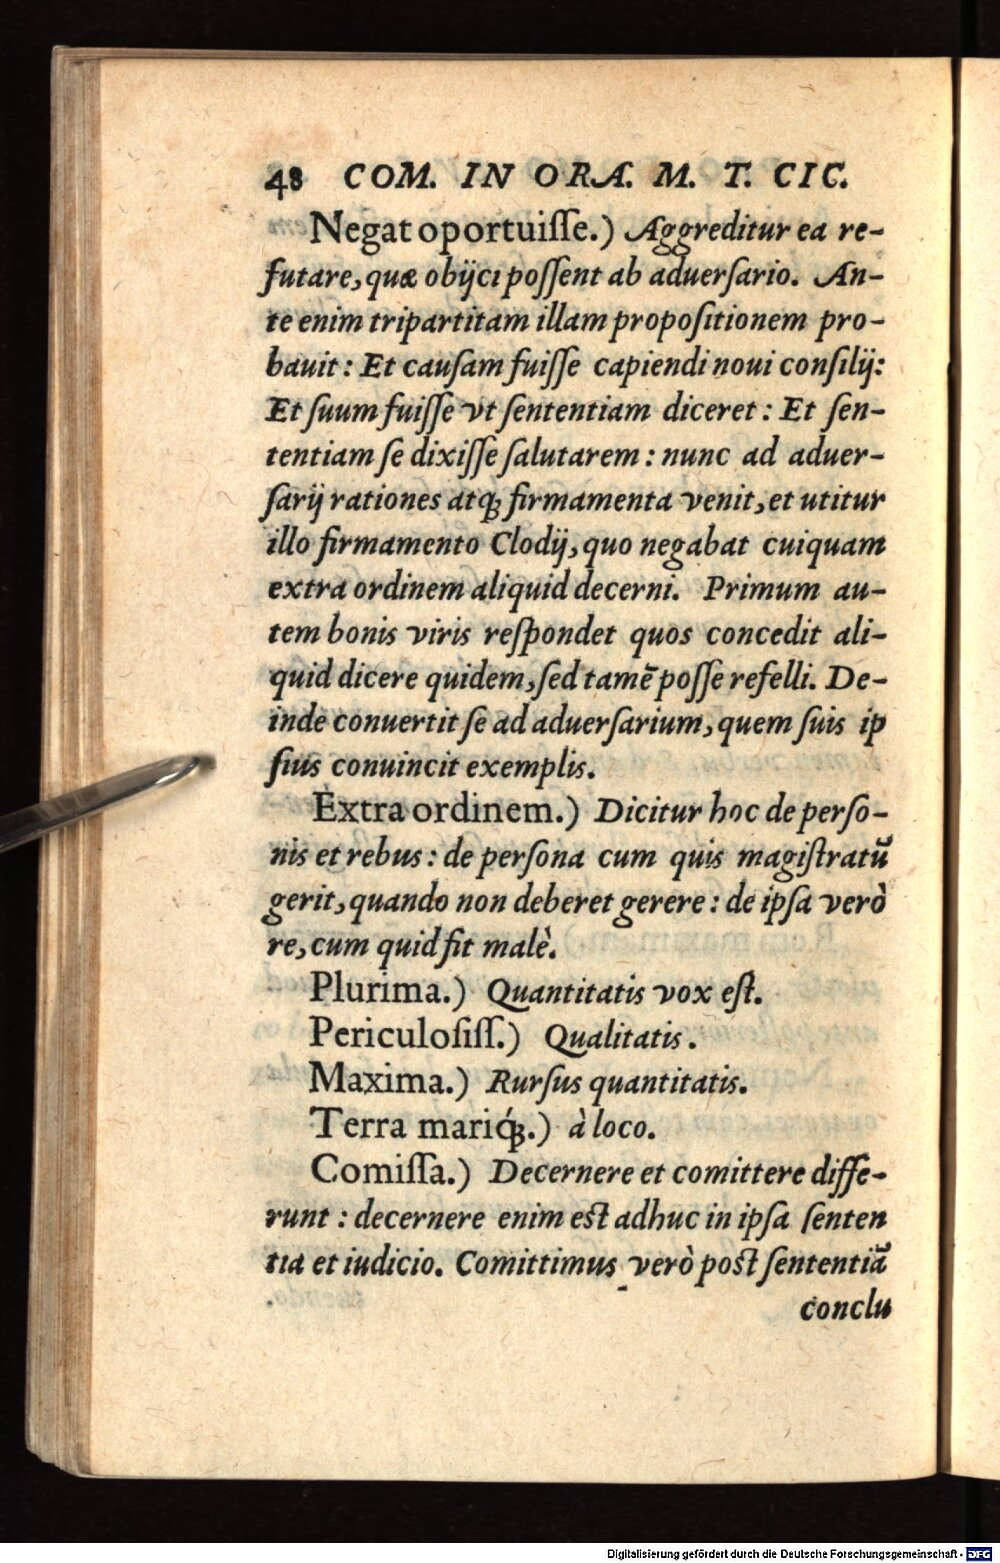 48 COM. IN ORA. M. T. CIC.
Negat oportuiſſe.) Aggreditur ea re-
futare, quæ obijci poſſent ab aduerſario. An-
te enim tripartitam illam propoſitionem pro-
bauit: Et cauſam fuiſſe capiendi noui conſilij:
Et ſuum fuiſſe vt ſententiam diceret: Et ſen-
tentiam ſe dixiſſe ſalutarem: nunc ad aduer-
ſarij rationes atq; firmamenta venit, et utitur
illo firmamento Clodij, quo negabat cuiquam
extra ordinem aliquid decerni. Primum au-
tem bonis viris reſpondet quos concedit ali-
quid dicere quidem, ſed tamē poſſe refelli. De-
inde conuertit ſe ad aduerſarium, quem ſuis ip
ſius conuincit exemplis.
Extra ordinem.) Dicitur hoc de perſo-
nis et rebus: de perſona cum quis magiſtratũ
gerit, quando non deberet gerere: de ipſa verò
re, cum quid fit malè.
Plurima.) Quantitatis vox eſt.
Periculoſiſſ.) Qualitatis.
Maxima.) Rurſus quantitatis.
Terra mariq́;.) à loco.
Comiſſa.) Decernere et comittere diffe-
runt: decernere enim eſt adhuc in ipſa ſenten
tia et iudicio. Comittimus verò poſt ſententiã
conclu
Digitalisierung gefördert durch die Deutsche Forschungsgemeinschaft - DFG